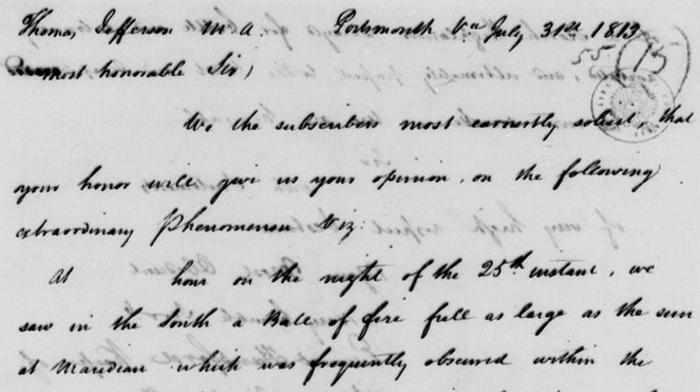 Thomas Jefferson M A. Portsmouth Va July 31st 1813
55 (15)
most honorable Sir,
We the subscribers most earnestly solicit, that
your honor will give us your opinion, on the following
extraordinary Phenomenon Viz:
At hour on the night of the 25th instant, we
saw in the South a Ball of fire full as large as the sun
at Maredian which was frequently obscured within the